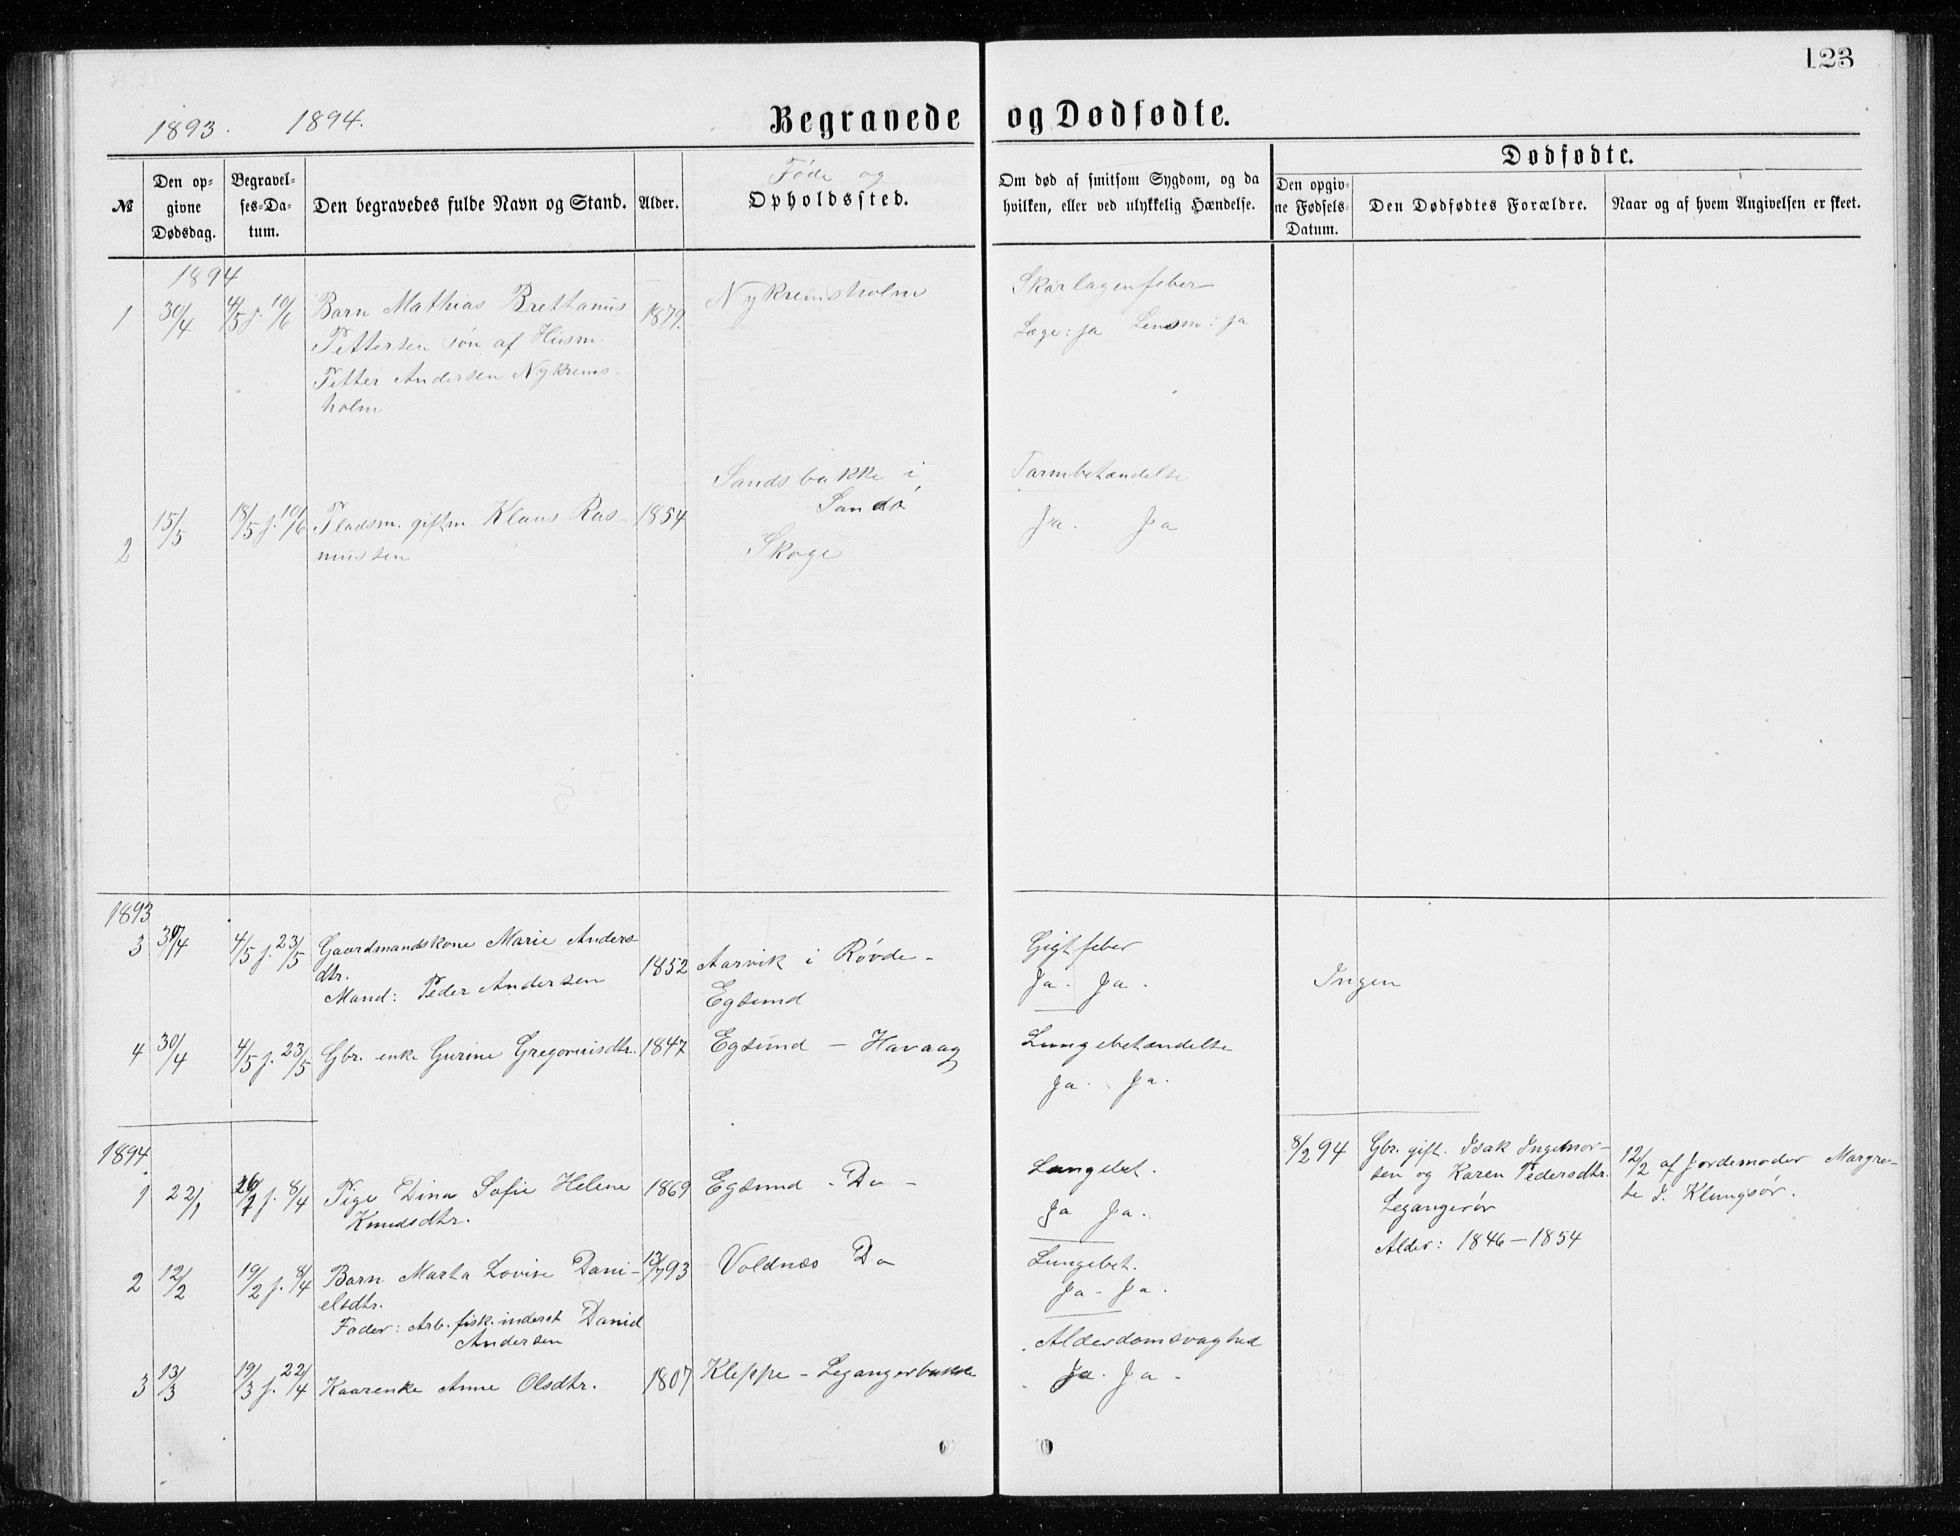 123
1893. 1894.
Begravede og Dødfødte.
№
Den opgivne Dødsdag.
Begravelses-Datum.
Den begravedes fulde Navn og Stand.
Alder.
Føde og
Opholdssted.
Om død af smitsom Sygdom, og da
hvilken, eller ved ulykkelig Hændelse.
Dødfødte.
Den opgivne Fødsels-Datum.
Den Dødfødtes Forældre.
Naar og af hvem Angivelsen er skeet.
1894
1 30/4 4/5 j. 10/6 Barn Mathias Brettanus 1879. Nykremsholm Skarlagenfeber
Pettersen søn af Husm. Læge: ja Lensm: ja
Petter Andersen Nykrems-
holm
Sandsbakke i Tarmbetændelse
2 15/5 18/5 j. 10/6 Pladsm. giftm Klaus Ras- 1854 Sandø ja. ja
mussen Skoge
1893
3 30/4 4/5 j. 23/5 Gaardmandskone Marie Anders- 1852 Aarvik i Røvde - Gigtfeber
dtr. Ja. Ja. Ingen
Mand: Peder Andersen Egsund
4 30/4 4/5 j. 23/5 Gbr. enke Gurine Gregoriusdtr. 1847 Egsund — Havaag Lungebetændelse
Ja. Ja.
1894
1 22/1 j. 8/4 Pige Dina Sofie Helene 1869 Egsund - Do - Lungebet.
Knudsdtr. Ja Ja.
8/2 94 Gbr. gift. Isak Ingebrigt-
sen og Karen Pedersdtr.
Legangerør
Alder: 1846 — 1854
12/2 af Jordemoder Margre-
te J. Klungsør.
2 12/2 19/2 j. 8/4 Barn Marta Lovise Dani- 13/7 93 Voldnæs Do Lungebet.
elsdtr. Ja - Ja.
Fader: Arb. fisk. inderst Daniel
Andersen
3 13/3 19/3 j. 22/4 Kaarenke Anne Olsdtr. 1807 Kleppe - Legangerbakke Alderdomsvaghed
Ja. Ja -